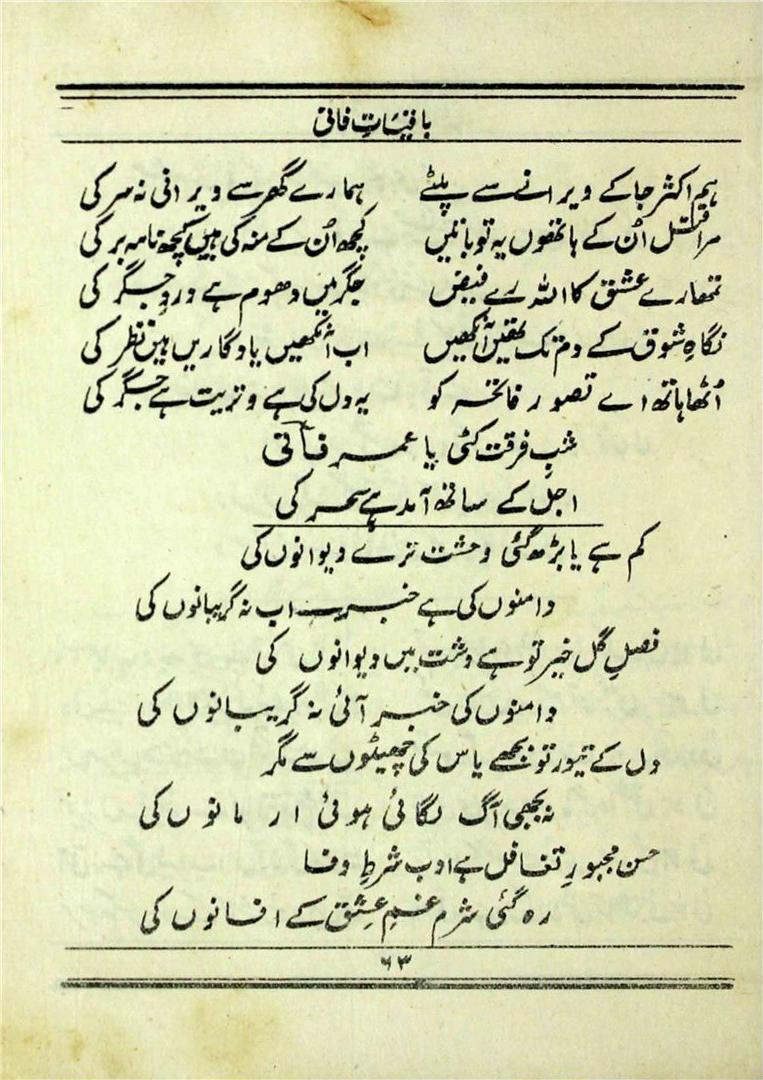 باقیاتِ فانی
ہم اکثر جا کے ویرانے سے پلٹے ہمارے گھر سے ویرانی نہ سرکی
مرا قتل اُن کے ہاتھوں یہ تو باتیں کچھ اُن کے منہ کی ہیں کچھ نامہ بر کی
تمھارے عشق کا اللہ رے فیض جگر میں دھوم ہے دردِ جگر کی
نگاہِ شوق کے دم تک تھیں آنکھیں اب آنکھیں یادگاریں ہیں نظر کی
اُٹھا ہاتھ اے تصور فاتحہ کو یہ دل کی ہے وہ تربت ہے جگر کی
شبِ فرقت کٹی یا عمر فانی
اجل کے ساتھ آمد ہے سحر کی
کم ہے یا بڑھ گئی وحشت ترے دیوانوں کی
دامنوں کی ہے خبر اب نہ گریبانوں کی
فصلِ گل خیر تو ہے دشت میں دیوانوں کی
دامنوں کی خبر آئی نہ گریبانوں کی
دل کے تیور تو بجھے یاس کی چھینٹوں سے مگر
نہ بجھی آگ لگائی ہوئی ارمانوں کی
حسن مجبورِ تغافل ہے ادب شرطِ وفا
رہ گئی شرم غمِ عشق کے افسانوں کی
۶۳